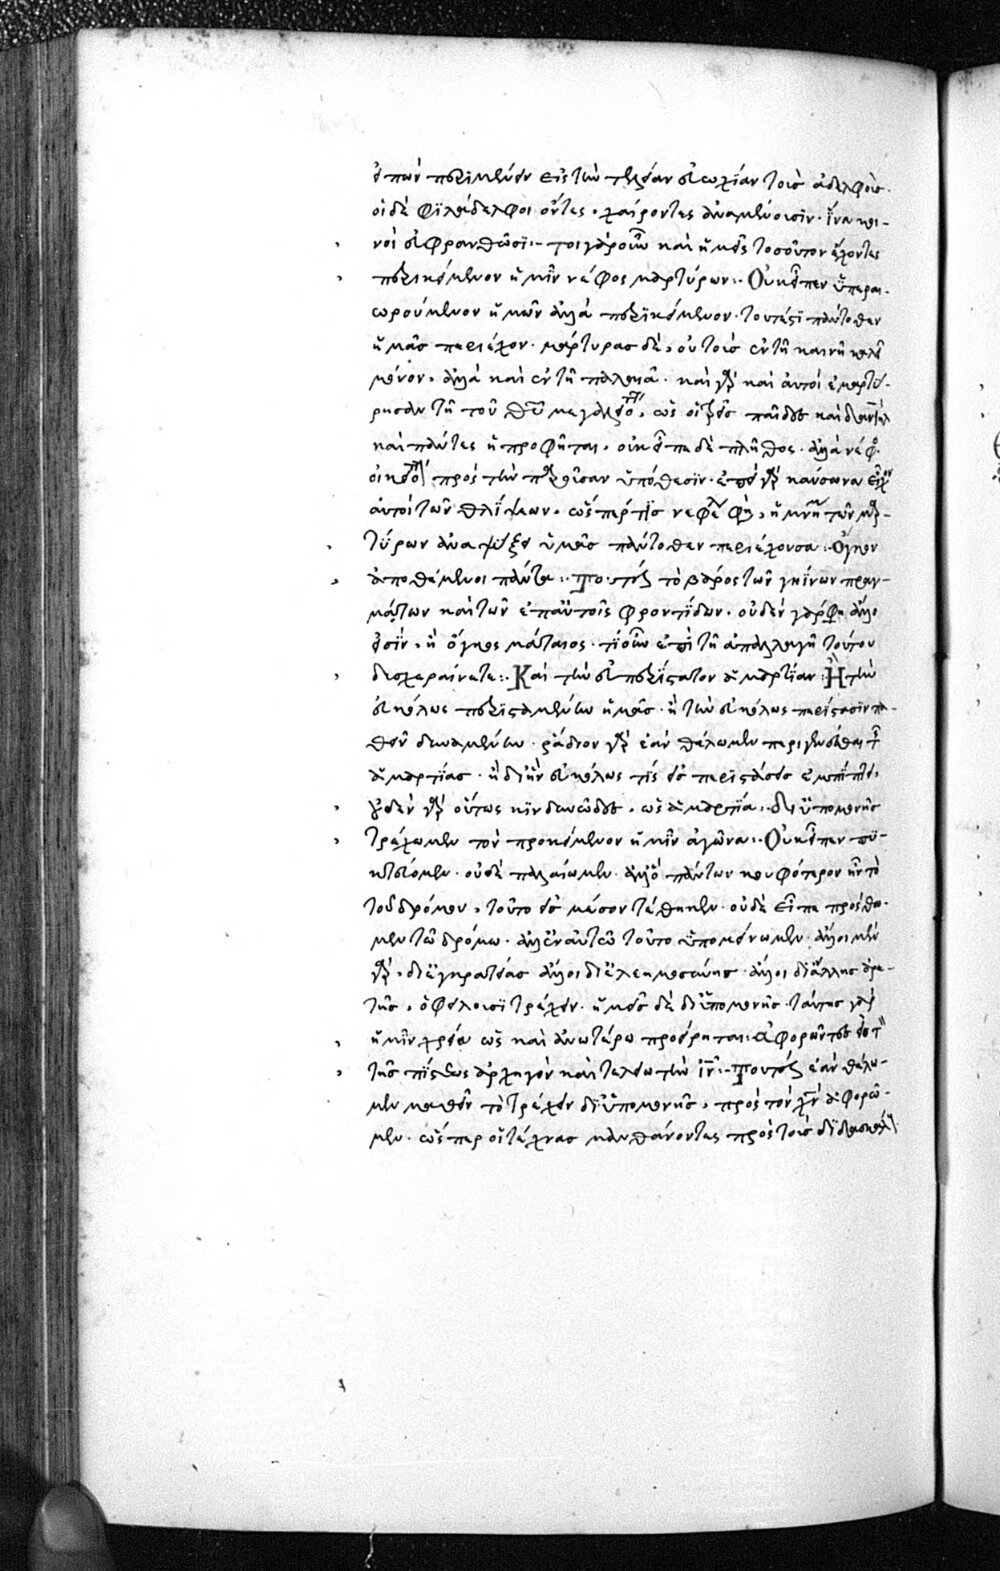 εἰπὼν περιμένειν εἰς τὴν τελείαν εὐωχίαν τοὺς ἀδελφούς.
οἱ δὲ φιλάδελφοι ὄντες, χαίροντες ἀναμένουσιν. ἵνα κοι-
νοὶ εὐφρανθῶσι: τοιγαροῦν καὶ ἡμεῖς τοσοῦτον ἔχοντες
περικείμενον ἡμῖν νέφος μαρτύρων: Οὐκ εἶπεν ὑπεραι-
ωρούμενον ἡμῶν ἀλλὰ περικείμενον. τουτέστι πάντοθεν
ἡμᾶς περιέχον. μάρτυρας δὲ, οὐ τοὺς ἐν τῇ καινῇ
μόνον, ἀλλὰ καὶ ἐν τῇ παλαιᾷ. καὶ γὰρ καὶ αὐτοὶ ἐμαρτύ-
ρησαν τῇ τοῦ θῦ μεγαλειότητι, ὡς οἱ τρεῖς παῖδες καὶ
καὶ πάντες οἱ προφῆται. οὐκ εἶπε δὲ πλῆθος. ἀλλὰ νέφος
πρὸς τὴν ὑπόθεσιν. ἐπεὶ γὰρ καύσωνα εἶχον
αὐτοὶ τῶν θλίψεων. ὥσπερ τις νεφέλη φησὶ, ἡ μνήμη τῶν μαρ-
τύρων ἀναψύξει ὑμᾶς πάντοθεν περιέχουσα: Ὄγκον
ἀποθέμενοι πάντα: Τουτέστι τὸ βάρος τῶν γηΐνων πραγ-
μάτων καὶ τῶν ἐπ' αὐτοῖς φροντίδων. οὐδὲν γὰρ φησὶ ἄλλο
εἰσὶν, ἢ ὄγκος μάταιος. τί οὖν ἐπὶ τῇ ἀπαλλαγῇ τούτου
δυσχεραίνετε: Καὶ τὴν εὐπερίστατον ἁμαρτίαν: Ἢ τὴν
εὐκόλως περισταμένην ἡμᾶς. ἢ τὴν εὐκόλως περίστασιν πα-
θεῖν δυναμένην. ῥᾴδιον γὰρ ἐὰν θέλωμεν περιγενέσθαι τῆς
ἁμαρτίας. ἢ δι' ἣν εὐκόλως τίς εἰς περιστάσεις ἐμπίπτει.
οὐδὲν γὰρ οὕτως κινδυνῶδες, ὡς ἁμαρτία: δι' ὑπομονῆς
τρέχωμεν τὸν προκείμενον ἡμῖν ἀγῶνα: Οὐκ εἶπεν πυ-
κτεύομεν. οὐδὲ παλαίωμεν. ἀλλ' ὃ πάντων κουφότερον ἦν τὸ
τοῦ δρόμου, τοῦτο εἰς μέσον τέθηκεν. οὐδὲ εἶπε προσθῶ-
μεν τῷ δρόμῳ. ἀλλ' ἐν αὐτῷ τούτῳ ὑπομένωμεν. ἄλλοι μὲν
γὰρ, δι' ἐγκρατείας ἄλλοι δι' ἐλεημοσύνης ἄλλοι δι' ἄλλης ἀρε-
τῆς, ὀφείλουσι τρέχειν. ἡμεῖς δὲ δι' ὑπομονῆς. ταύτης γὰρ
ἡμῖν χρεία ὡς καὶ ἀνωτέρω προείρηται: ἀφορῶντες εἰς τὸν
τῆς πίστεως ἀρχηγὸν καὶ τελειωτὴν ἰν: Τουτέστι ἐὰν θέλω-
μεν μαθεῖν τὸ τρέχειν δι' ὑπομονῆς, πρὸς τὸν χν ἀφορῶ-
μεν. ὥσπερ οἱ τέχνας μανθάνοντες πρὸς τοὺς διδασκάλους.